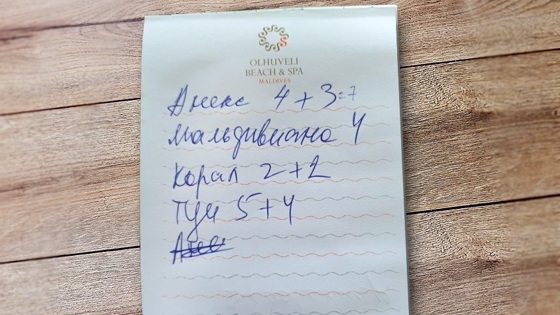 OLHUVELI
BEACH & SPA
MALDIVES
Анекс 4+3=7
Мальдивиана 4
Корал 2+2
Туи 5+4